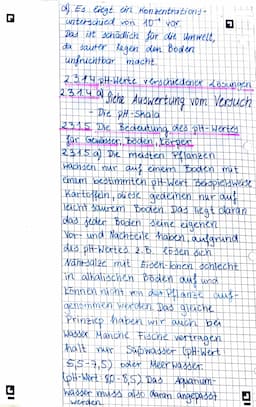 d) Es liegt ein Konzentrations-
unterschied von 10⁻¹ vor.
Das ist schädlich für die Umwelt,
da saurer Regen den Boden
unfruchtbar macht.
2.3.1.4 pH-Werte verschiedener Lösungen
2.3.1.4 a) Siehe Auswertung vom Versuch
- Die pH-Skala
2.3.1.5 Die Bedeutung des pH-Wertes
für Gewässer, Boden, Körper
2.3.1.5 a) Die meisten Pflanzen
wachsen nur auf einem Boden mit
einem bestimmten pH-Wert. Beispielsweise
Kartoffeln, diese gedeinen nur auf
leicht saurem Boden. Das liegt daran
das jeder Boden seine eigenen
Vor- und Nachteile haben, aufgrund
des pH-Wertes. z.B. lösen sich
Nährsalze mit Eisen-Ionen schlecht
in alkalischen Böden auf und
können nicht von der Pflanze auf-
genommen werden. Das gleiche
Prinziep haben wir auch bei
Wasser. Manche Fische vertragen
halt nur Süßwasser (pH-Wert
5,5-7,5) oder Meerwasser
(pH-Wert 8,0-8,5). Das Aquarium-
wasser muss also daran angepasst
werden.